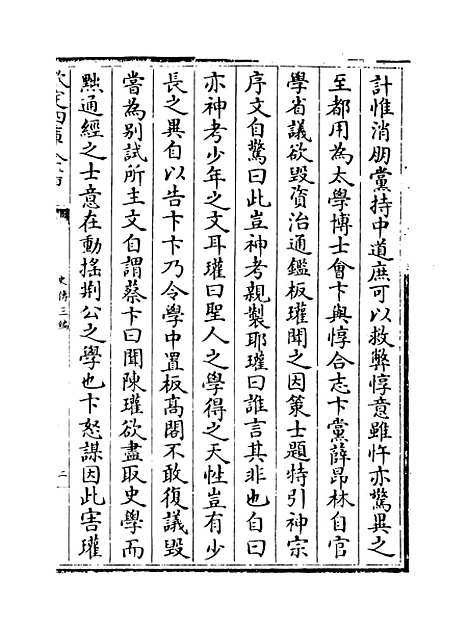 計惟消朋黨持中道庶可以救弊惇意雖忤亦驚異之
至都用為太學博士會卞與惇合志卞黨薛昂林自官
學省議欲毀資治通鑑板瓘聞之因策士題特引神宗
序文自驚曰此豈神考親製耶瓘曰誰言其非也自曰
亦神考少年之文耳瓘曰聖人之學得之天性豈有少
長之異自以告卞卞乃令學中置板高閣不敢復議毀
嘗為别試所主文自謂蔡卞曰聞陳瓘欲盡取史學而
黜通經之士意在動搖荆公之學也卞怒謀因此害瓘
欽定四庫全書
史傳三編
二